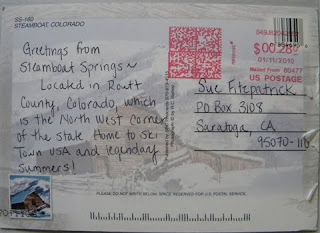 SS-160
STEAMBOAT, COLORADO
Greetings from
Steamboat Springs~
Located in Routt
County, Colorado, which
is the North West Corner
of the state. Home to Ski
Town USA and legendary
Summers!
$00.28
01/11/2010
Mailed From 80477
US POSTAGE
Sue Fitzpatrick
PO Box 3108
Saratoga, CA
95070-110
PLEASE DO NOT WRITE BELOW. SPACE RESERVED FOR U.S. POSTAL SERVICE.